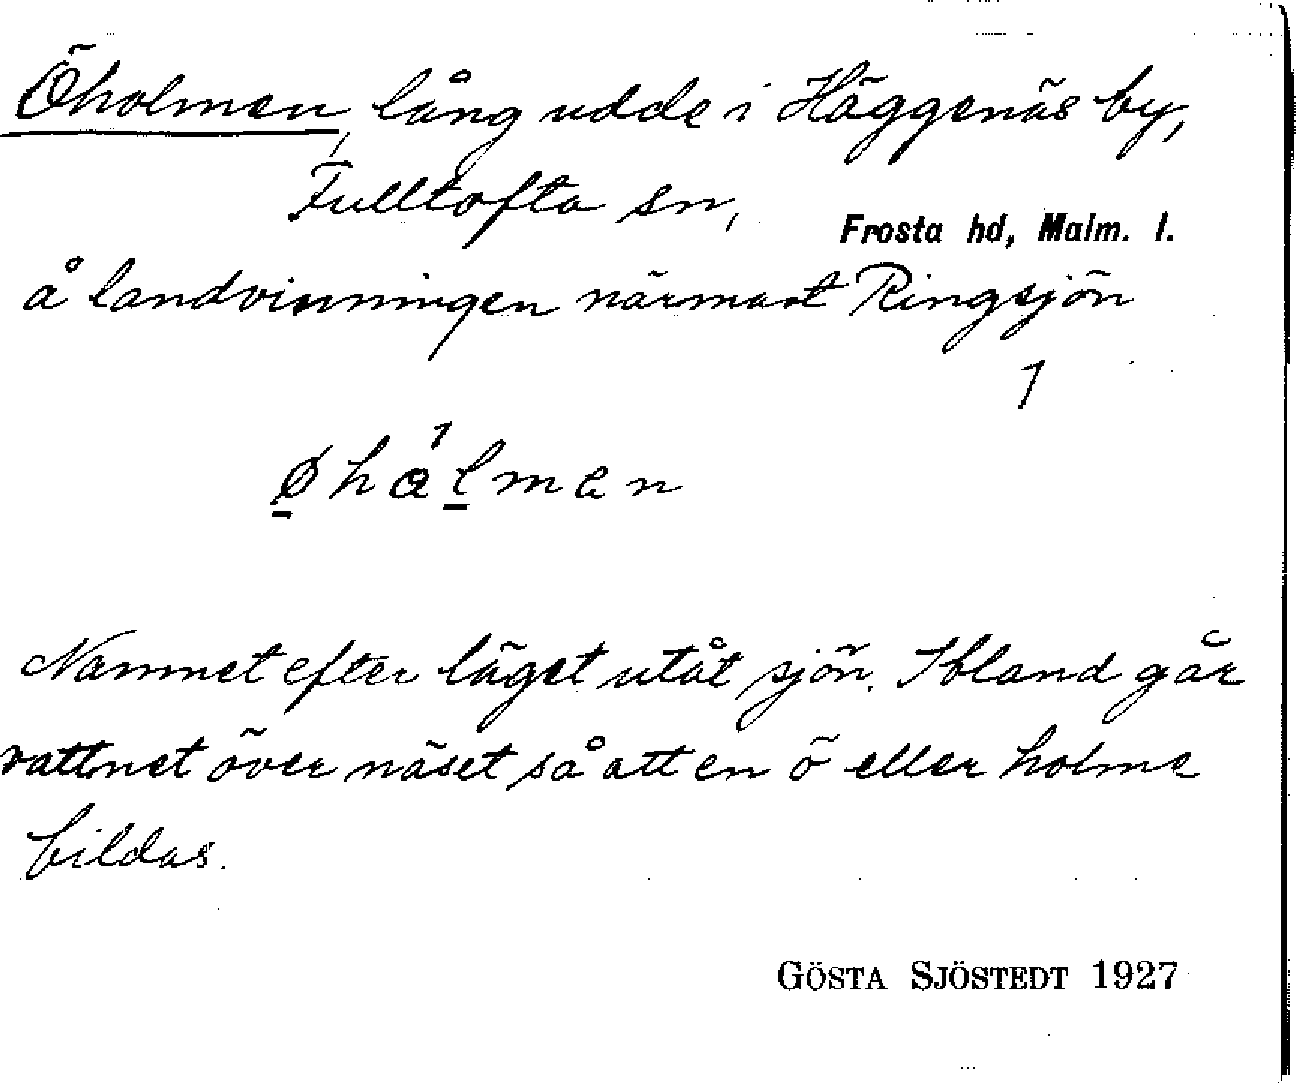 Öholmen, lång udde i Häggenäs by,
Fulltofta sn, Frosta hd, Malm. l.
å landvinningen närmast Ringsjön
1
øhålmen
Namnet efter läget utåt sjön. Ibland går
vattnet över näset så att en ö eller holme
bildas.
GÖSTA SJÖSTEDT 1927